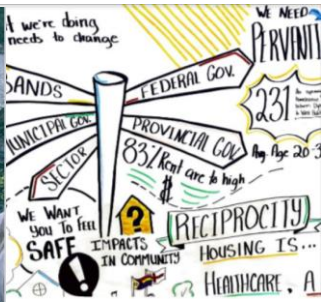 we're doing
needs to change
WE NEED
PERVENTI
ANDS
FEDERAL GOV.
231
MUNICIPAL GOV.
PROVINCIAL GOV
SECTOR
83% Rent are to high
$
Avg. Age 20-3
WE WANT
YOU TO FEEL
SAFE
?
!
IMPACTS
IN COMMUNITY
RECIPROCITY
HOUSING IS...
HEALTHCARE, A